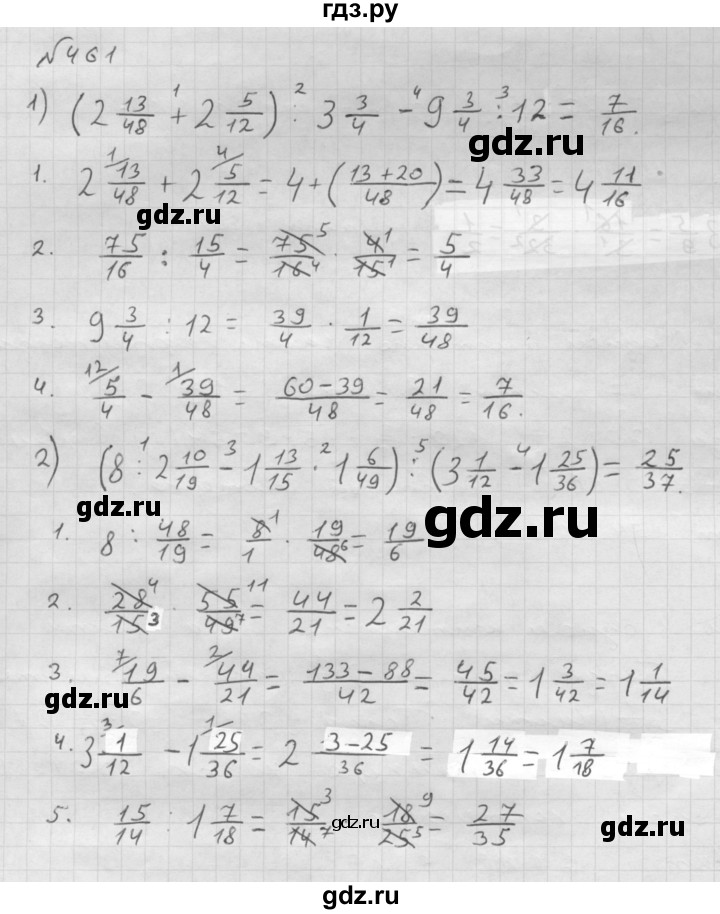 гдз.ру
№461
1) (2 13/48 + 2 5/12) : 3 3/4 - 9 3/4 : 12 = 7/16.
1 2 4 3
gdz.ru
1. 2 13/48 + 2 5/12 = 4 + (13+20/48) = 4 33/48 = 4 11/16
1 4
gdz.ru
2. 75/16 : 15/4 = 75/16 · 4/15 = 5/4
5 4 1 1
3. 9 3/4 : 12 = 39/4 · 1/12 = 39/48
4. 5/4 - 39/48 = 60-39/48 = 21/48 = 7/16.
12 1
2) (8 : 2 10/19 - 1 13/15 · 1 6/49) : (3 1/12 - 1 25/36) = 25/37.
1 3 2 5 4
gdz.ru
gdz.ru
1. 8 : 48/19 = 8/1 · 19/48 = 19/6
1 6
2. 28/15 · 55/49 = 44/21 = 2 2/21
4 3 11 7
3. 19/6 - 44/21 = 133-88/42 = 45/42 = 1 3/42 = 1 1/14
7 2
gdz.ru
4. 3 1/12 - 1 25/36 = 2 3-25/36 = 1 14/36 = 1 7/18
3 1
5. 15/14 : 1 7/18 = 15/14 · 18/25 = 27/35
3 7 9 5
gdz.ru
gdz.ru
gdz.ru